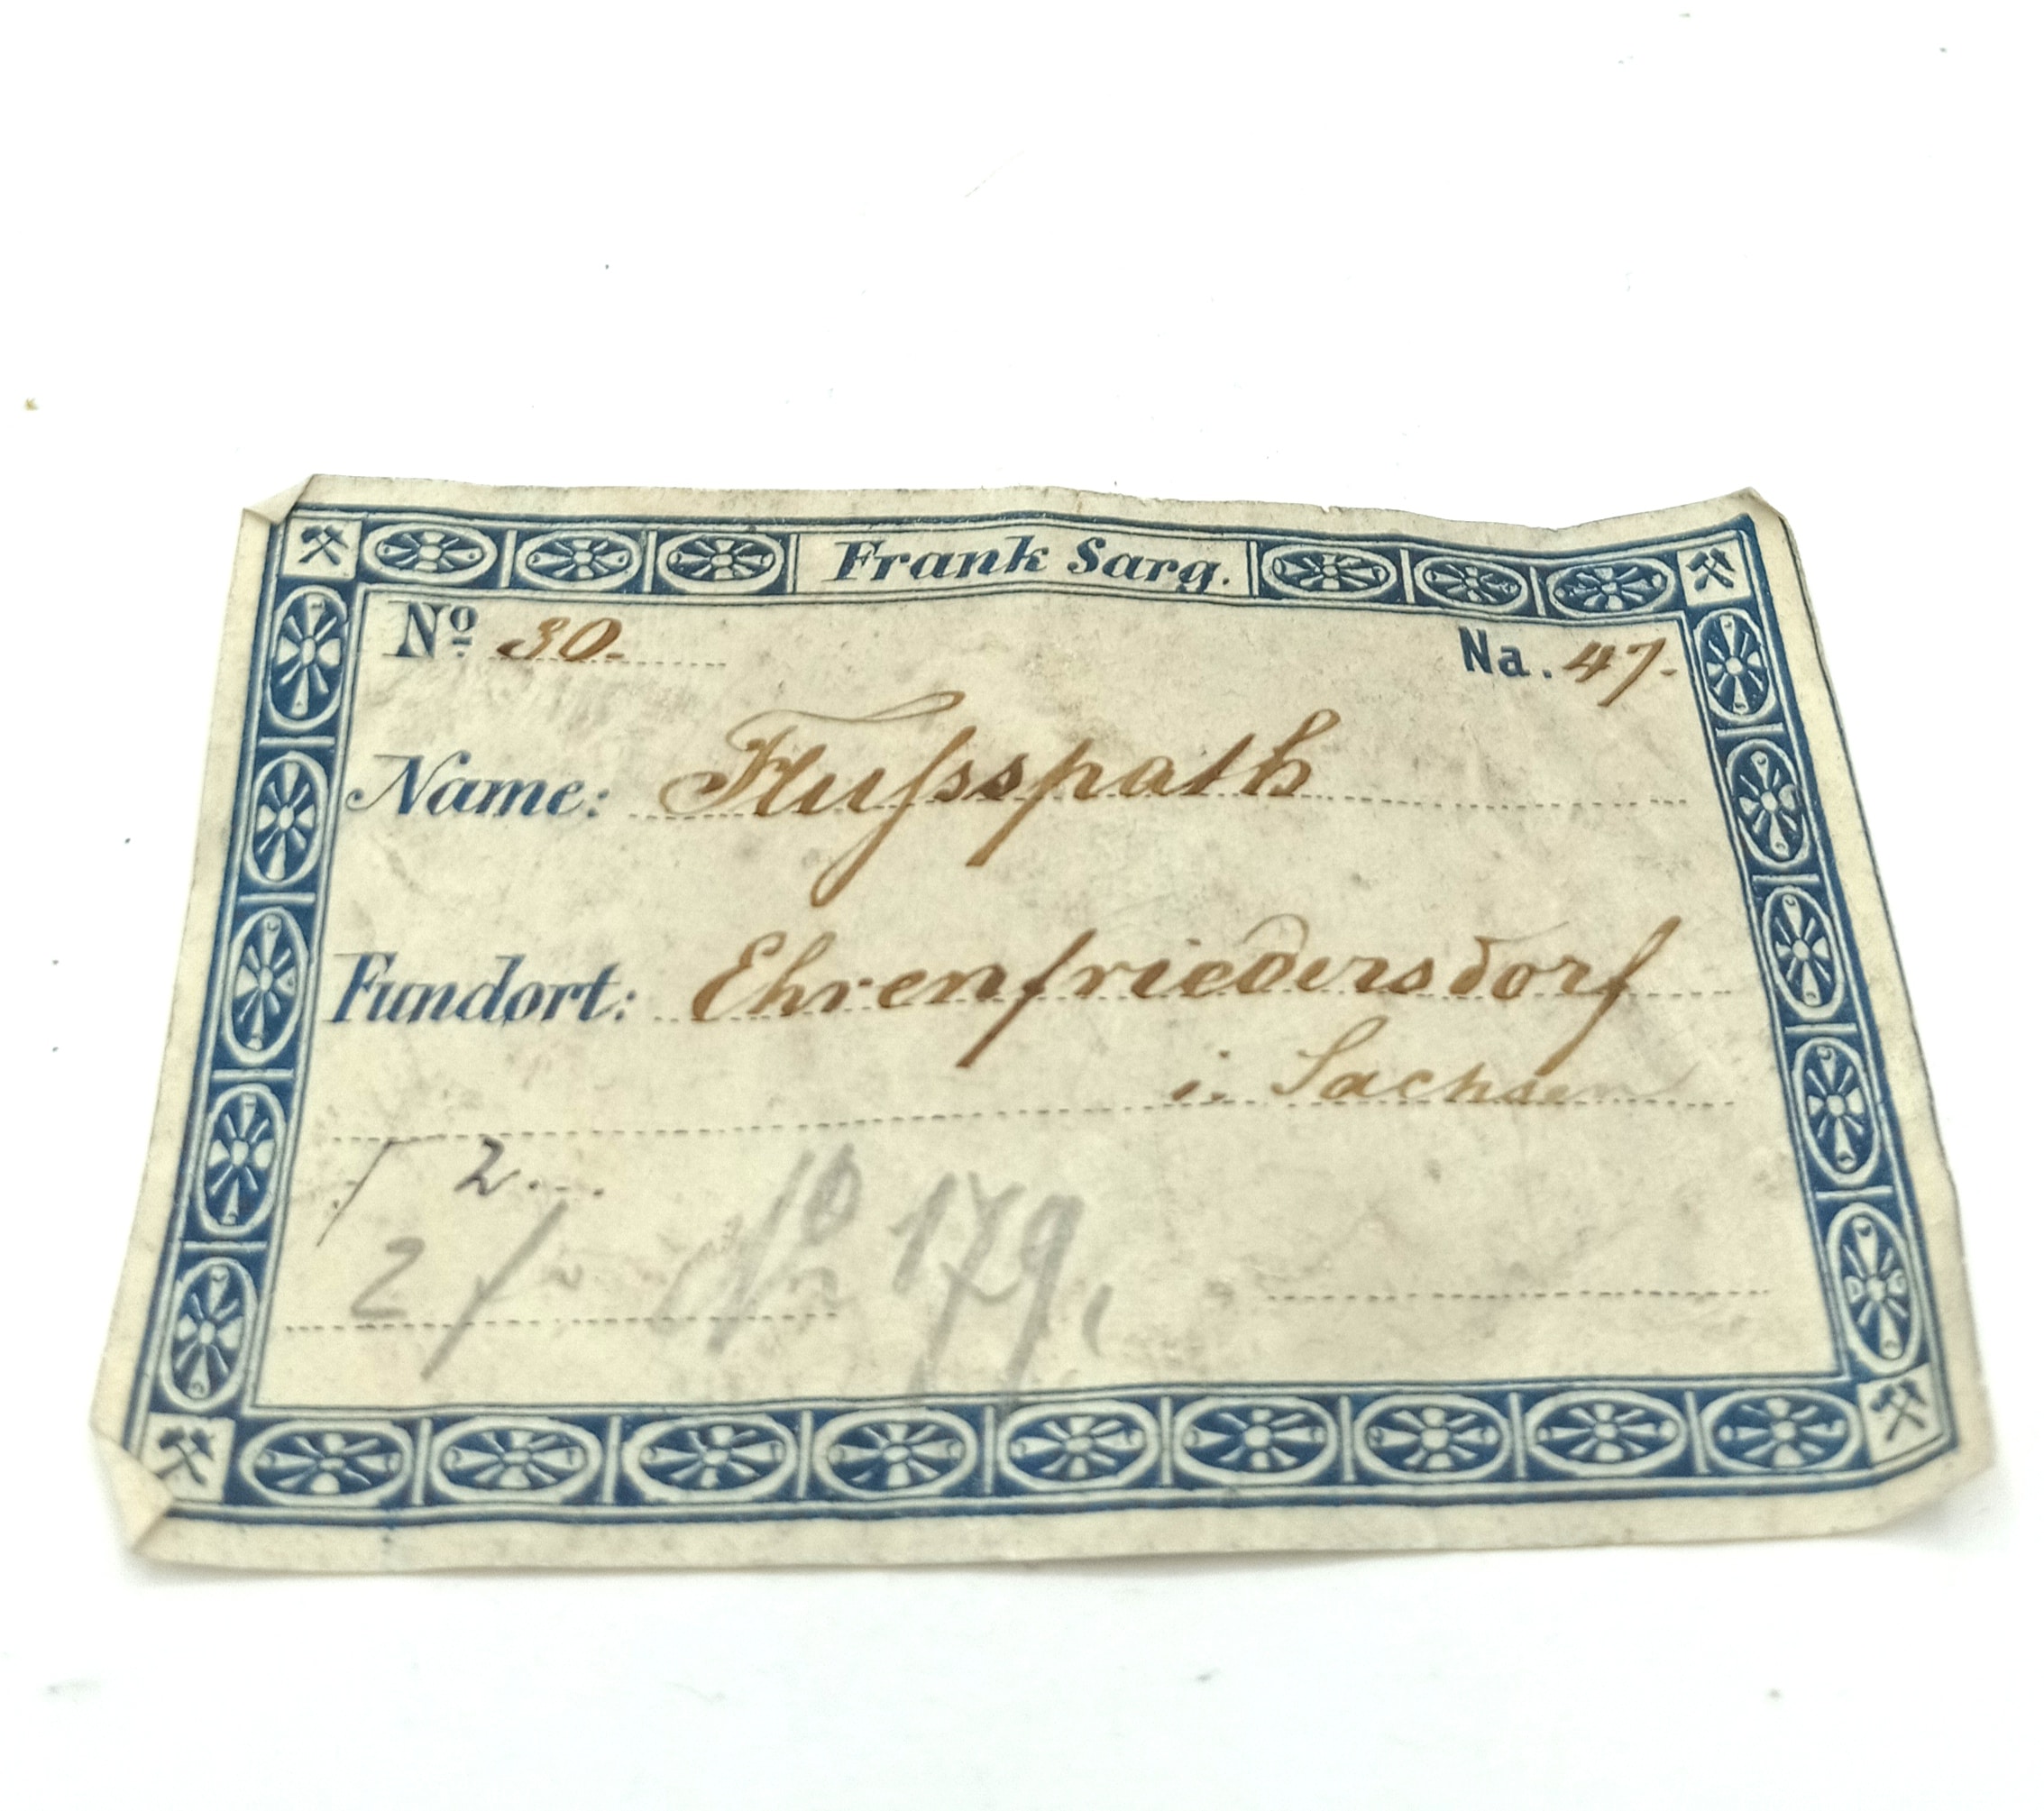 Frank Sarg.
Nº 30.
Na. 47.
Name: Flussspath
Fundort: Ehrenfriedersdorf
i. Sachsen
2
2
Nº 179.